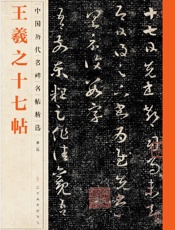 中国历代名碑名帖精选
王羲之十七帖
十七日先書郗司馬未去
即日得足下書為慰
先書以具示復數字
吾前東粗足作佳觀吾